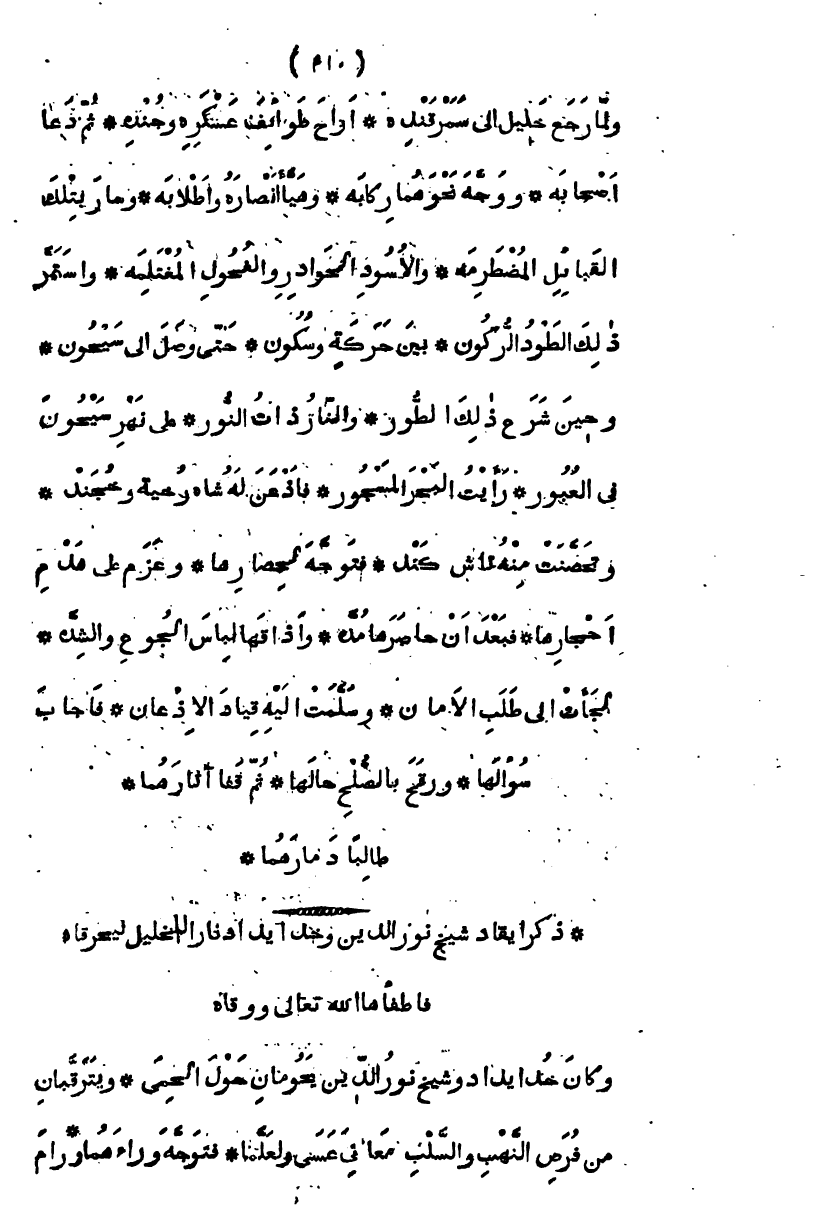 ( ٣١٠ )
ولَمَّا رَجَعَ خَلِيل الى سَمَرْقَنْدِه * اَراحَ طَوائِفَ عَسْكَرِه وجُنْدِه * ثُمَّ دَعَا
اَصْحابَه * ووَجَّهَ نَحْوَهُما رِكابَه * وهَيَّأَ اَنْصارَهُ واَطْلابَه * وسارَ بِتِلْكَ
القَبائِلِ المُضْطَرِمَه * والاُسُودِ الخَوادِرِ والفُحُولِ المُغْتَلِمَه * واستَمَرَّ
ذٰلِكَ الطَوْدُ الرَّكُون * بَيْنَ حَرَكَةٍ وسُكُون * حَتّٰى وَصَلَ الى سَيْحُون *
وحِينَ شَرَعَ ذٰلِكَ الطُّور * والنّارُ ذاتُ النُّور * على نَهْرِ سَيْحُونَ
فى العُبُور * رَأَيْتُ البَحْرَ المَسْجُور * فاَذْعَنَ لَهُ شاه رُخية وخُجَنْد *
وتَحَصَّنَتْ مِنْهُ تاش كَنْد * فتَوَجَّهَ لِحِصارِها * وعَزَم على هَدْمِ
اَحْجارِها * فبَعْدَ اَنْ حاصَرَها مُدَّه * واَذاقَها لِباسَ الجُوعِ والشِدَّه *
لجَأَتْ الى طَلَبِ الاَمان * وسَلَّمَتْ اليْهِ قِيادَ الاِذْعان * فَاَجابَ
سُؤْلَها * ورَقَّحَ بالصُّلْحِ حالَها * ثُمَّ قَفا آثارَهُما *
طالِبًا دَمارَهُما *
* ذكر ايقاد شيخ نور الدين وخدايداد نارا للخليل ليحرقاه
فاطفأها الله تعالى ووقاه
وكانَ خُدايداد وشيخ نورُ الدّين يَحُومانِ حَوْلَ الحِمَى * ويَتَرَقَّبانِ
من فُرَصِ النَّهْبِ والسَّلْبِ مَعانِيَ عَسَى ولعَلَّما * فتَوَجَّهَ وَراءَهُما ورامَ